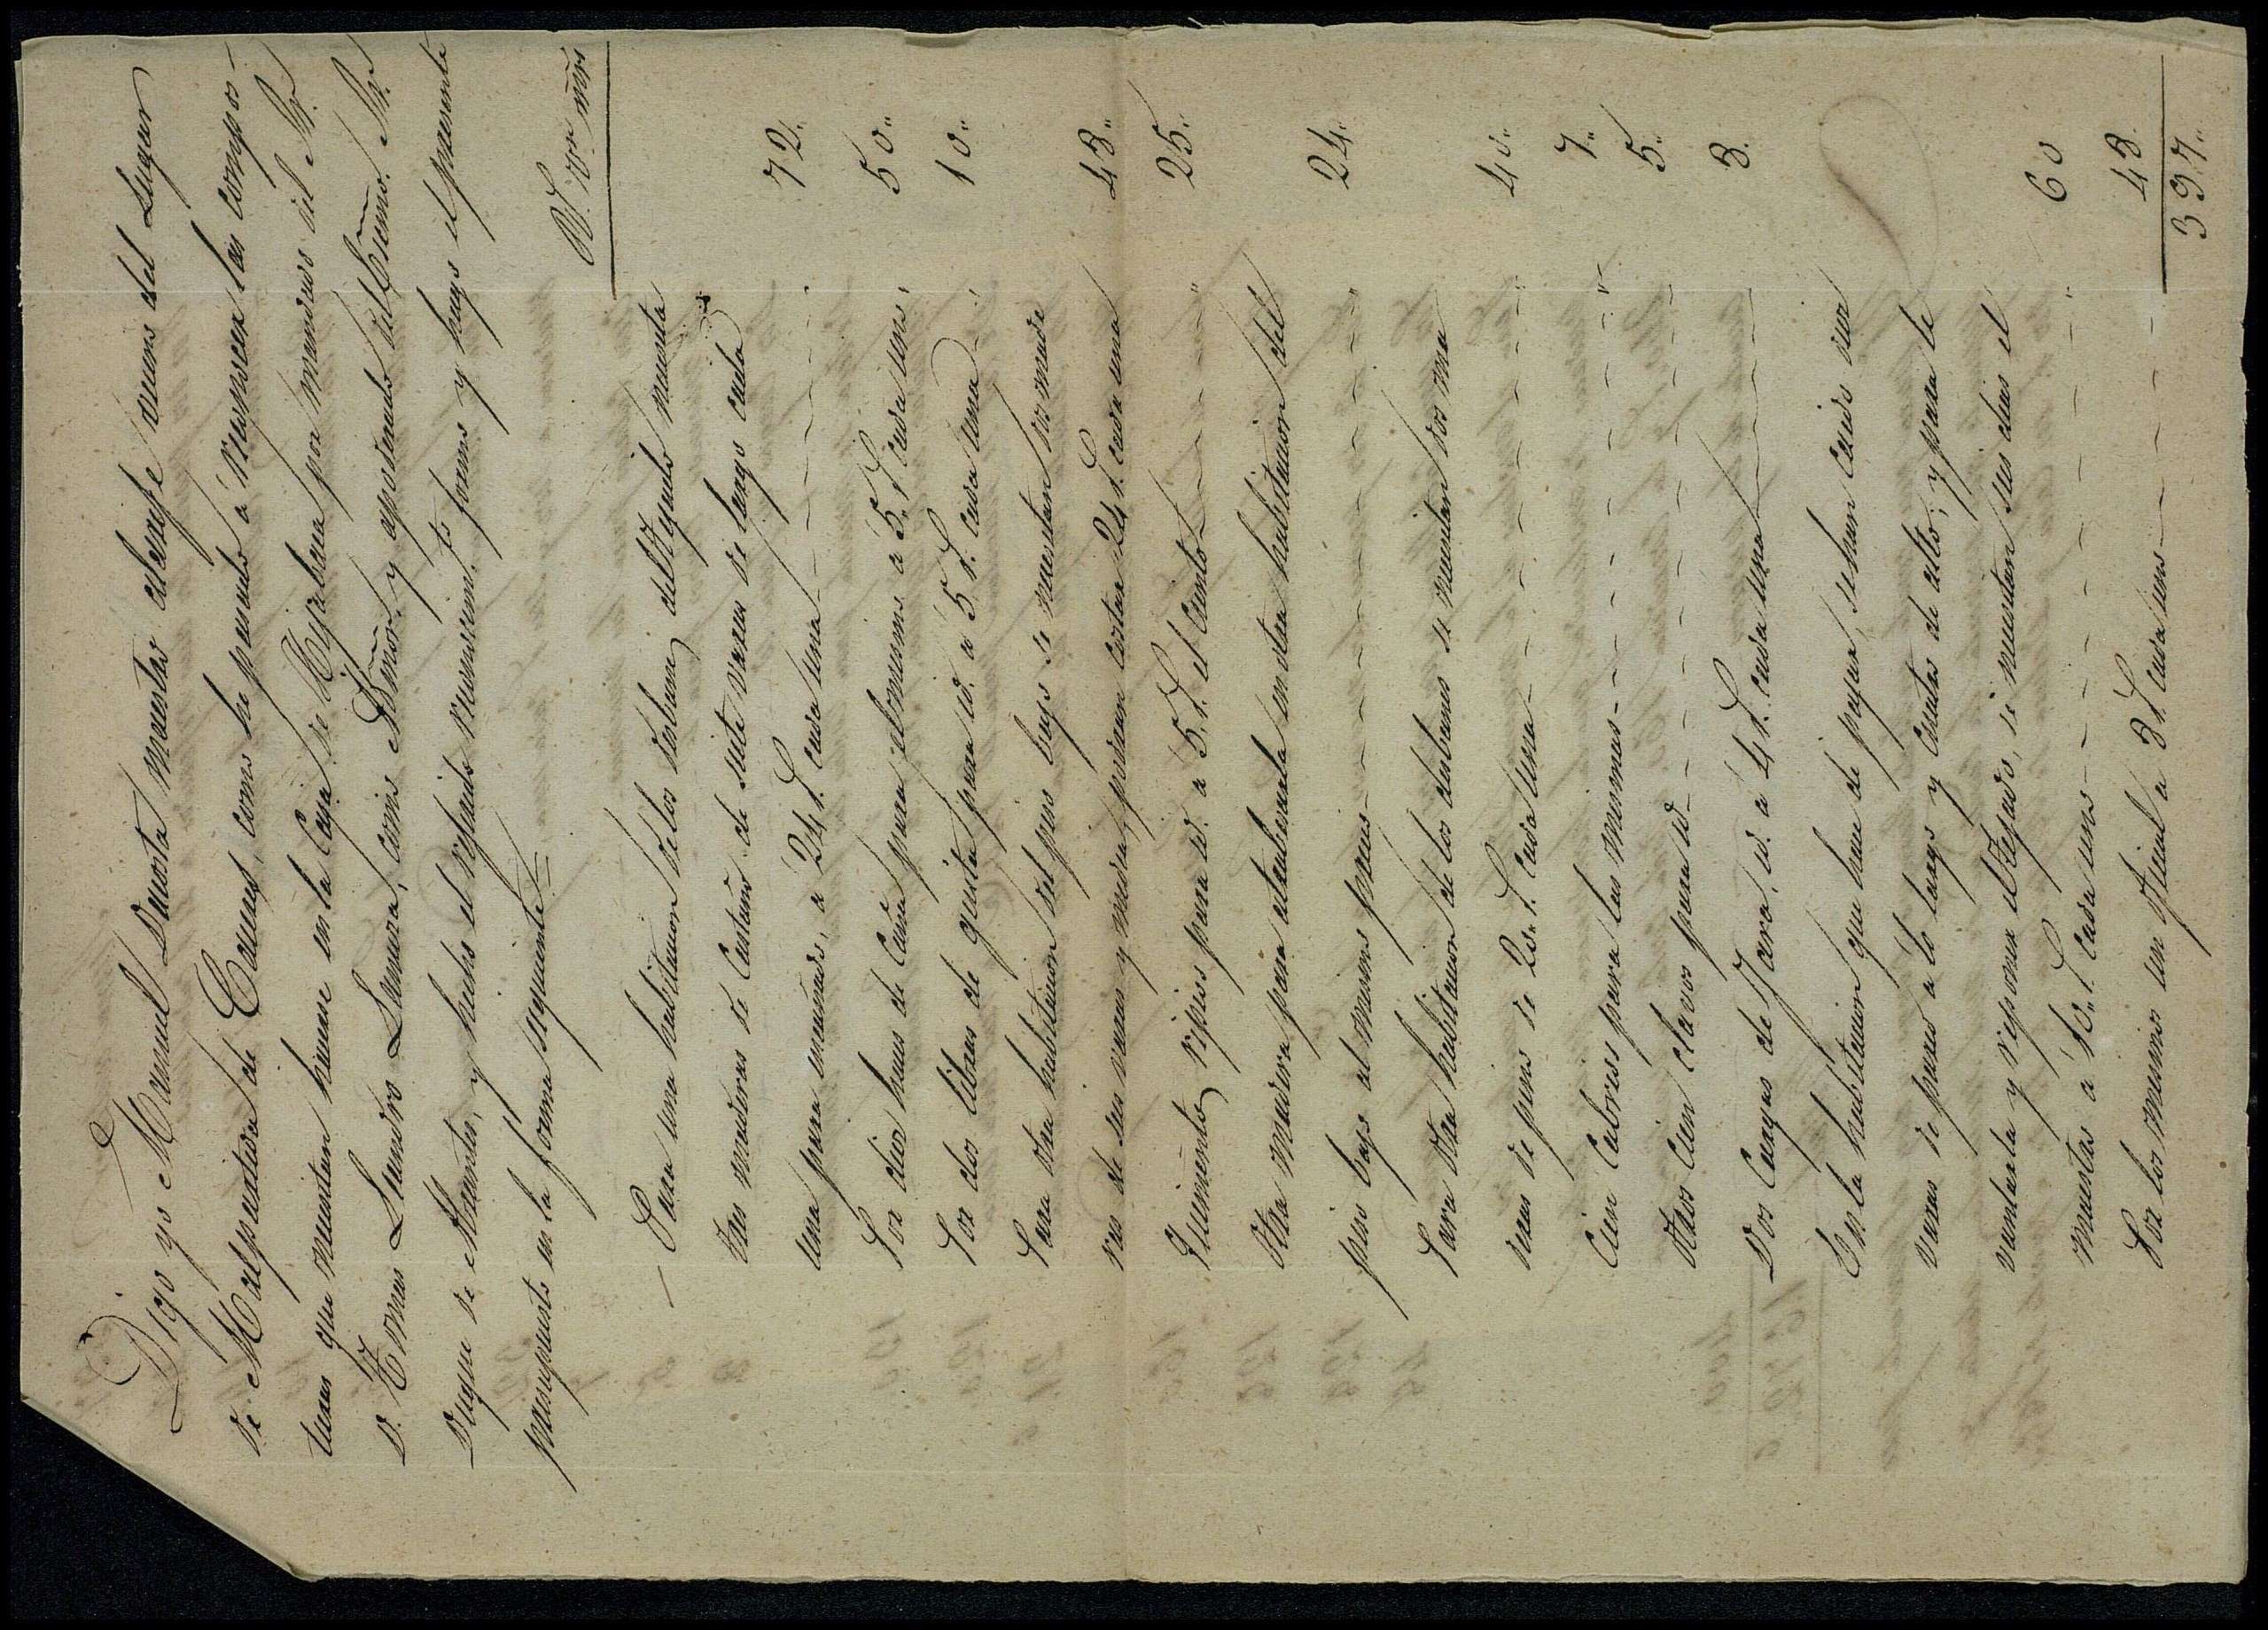 Digo yo Manuel Duosta maestro alarife vecino del Lugar
de Malpartida de Caceres, como he pasado a reconocer las compos-
turas que necesitan hacerse en la Casa de Mijabran por mandado del Sr.
D. Tomas Leandro Lanuza, como Admor. y apoderado del Excmo. Sr.
Duque de Abrantes, y hecho el referido reconocim.to formo y hago el presente
presupuesto en la forma siguiente=
Rs. von mrs
Para una habitacion de los doblaos, del tejado necesita
tres maderas de Castaño de siete varas de largo cada
una para encañado, a 24 r.s cada una 72.
Por diez haces de Caña para el mismo a 5 r.s cada uno, 50..
Por dos libras de guita para id. a 5 r.s cada una 10..
Para otra habitacion del piso bajo se necesitan dos made
ras de seis varas y media, podran costar 24 r.s cada una 48..
Quinientos ripios para id. a 5 r.s el ciento 25..
Otra madera para atrabesarla en otra habitacion del
piso bajo al mismo precio 24..
Para otra habitacion de los doblaos se necesitan dos ma
deras de pino de 20 r.s cada una 40..
Cien Cabrios para las mismas 7..
Otros Cien clavos para id. 5..
Dos Cargas de Jara, id. a 4 r.s cada una 8.
En la habitacion que hace de pajar, se han caido diez
varas de pared a lo largo y cuatro de alto; y para le
vantarla y reponer el tejado, se necesitan seis dias el
maestro a 10 r.s cada uno 60
Por los mismos un oficial a 8 r.s cada uno 48.
397..